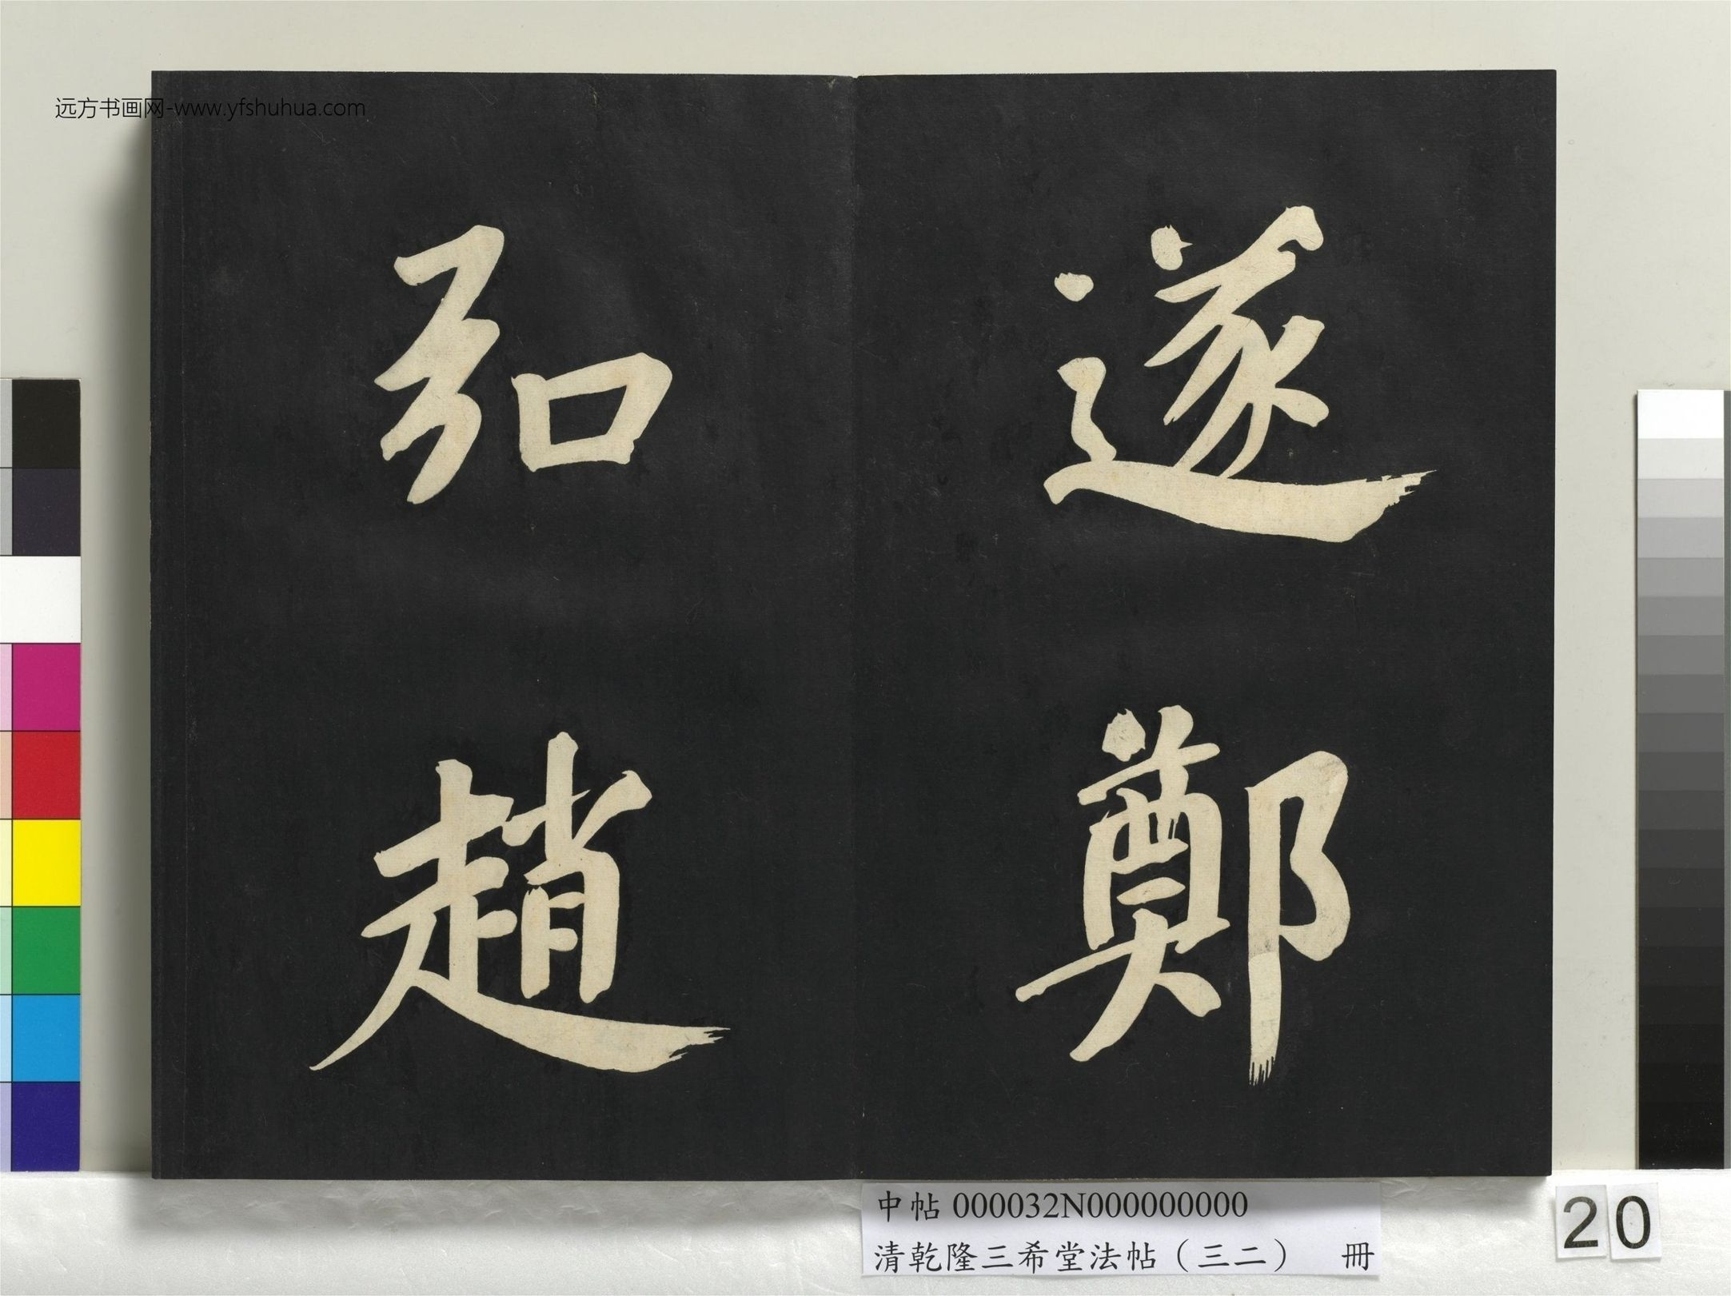 远方书画网-www.yfshuhua.com
遂鄭
弘趙
中帖 000032N000000000
清乾隆三希堂法帖（三二） 冊
20